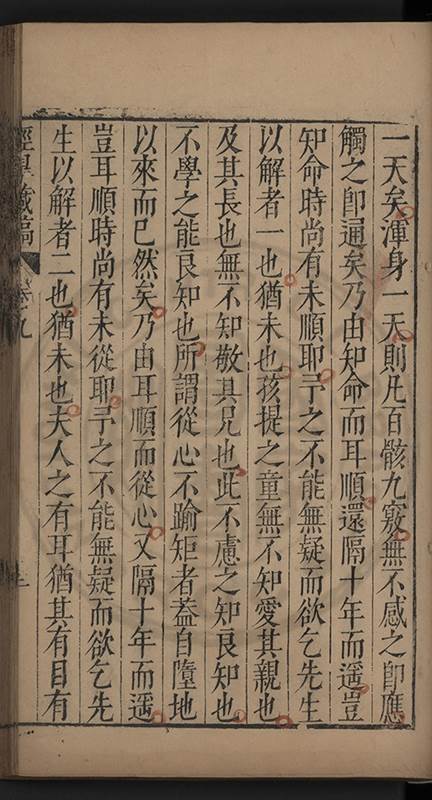 一天矣渾身一天則凡百骸九竅無不感之卽應
觸之卽通矣乃由知命而耳順還隔十年而遥豈
知命時尚有未順耶予之不能無疑而欲乞先生
以解者一也猶未也孩提之童無不知愛其親也
及其長也無不知敬其兄也此不慮之知良知也
不學之能良知也所謂從心不踰矩者葢自墮地
以來而已然矣乃由耳順而從心又隔十年而遥
豈耳順時尚有未從耶予之不能無疑而欲乞先
生以解者二也猶未也夫人之有耳猶其有目有
卷九